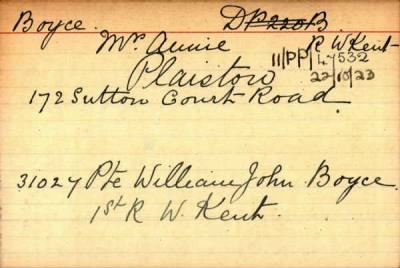 Boyce. DP220B
Mrs. Annie R W Kent
Plaistow 11/PP/47532
172 Sutton Court Road. 22/10/23
31027 Pte William John Boyce.
1st R. W. Kent.